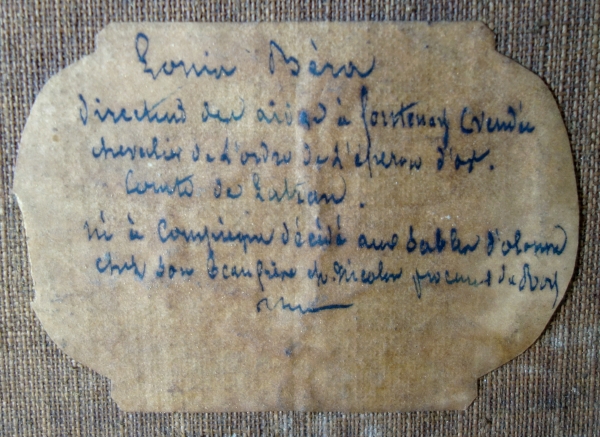 Louis Béra
directeur des aides à fontenay (vendée
chevalier de L'ordre de L'éperon d'or.
Comte de Latran.
né à Compiègne décédé aux sables d'olonne
chez son beaufrère Nicolas procureur du Roy